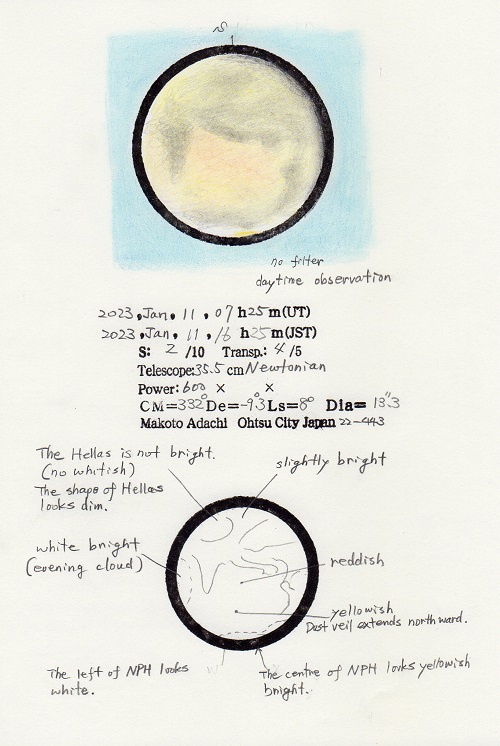 S
no filter
daytime observation
2023, Jan, 11, 07 h 25 m (UT)
2023, Jan, 11, 16 h 25 m (JST)
S: 2 /10 Transp.: 4 /5
Telescope: 35.5 cm Newtonian
Power: 600 × ×
CM=332° De=-9.3° Ls=8° Dia=13".3
Makoto Adachi Ohtsu City Japan 22-443
The Hellas is not bright.
(no whitish)
The shape of Hellas
looks dim.
slightly bright
white bright
(evening cloud)
reddish
yellowish
Dust veil extends northward.
The left of NPH looks
white.
The centre of NPH looks yellowish
bright.